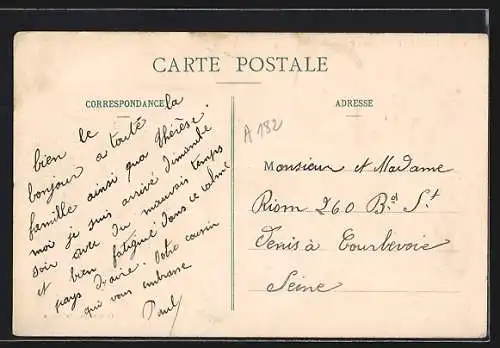 CARTE POSTALE
CORRESPONDANCE
ADRESSE
A 182
bien le
bonjour a toute la
famille ainsi qua Thérèse.
moi je suis arrivé dimanche
soir avec du mauvais temps
et bien fatigué dans ce calme
pays d'aire. Votre cousin
qui vous embrasse
Paul
Monsieur et Madame
Riom 260 Bd St
Denis à Courbevoie
Seine